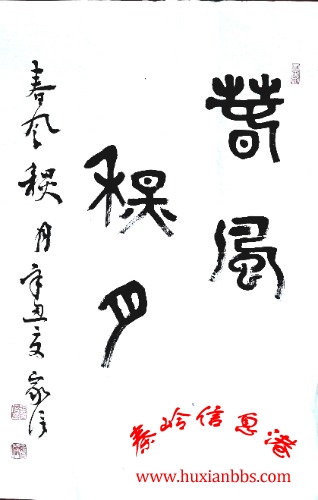 春風
秋月
春風秋月 辛丑夏 家信
秦岭信息港
www.huxianbbs.com